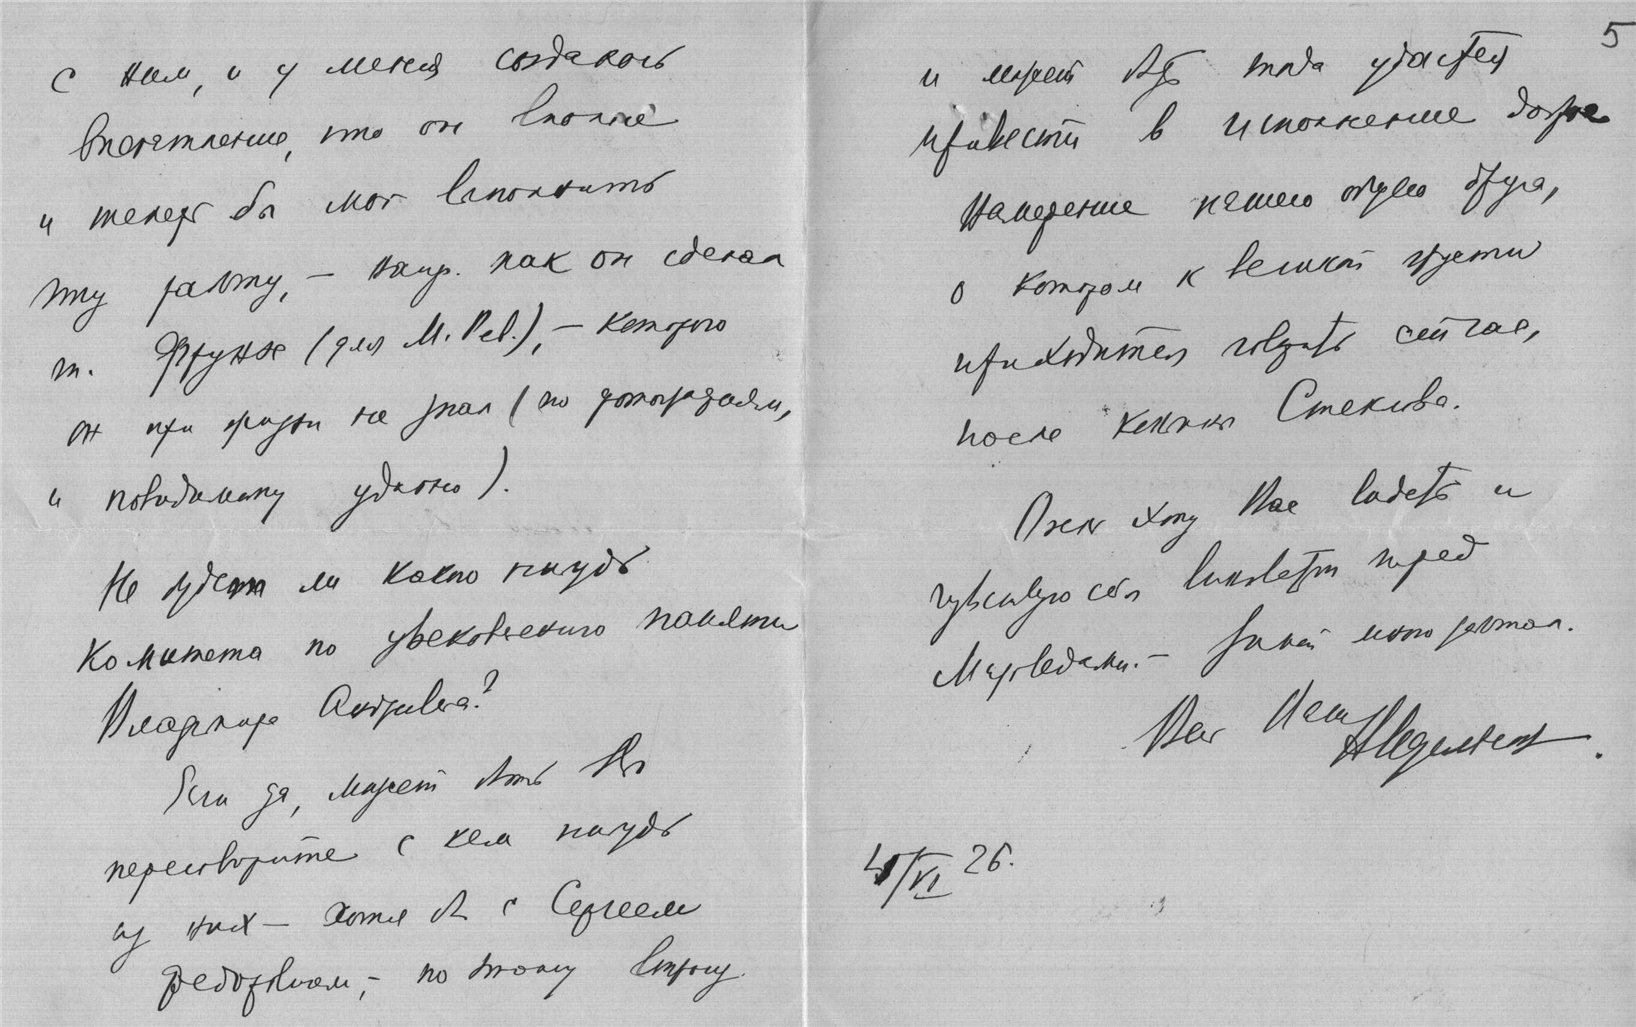 с ним, и у меня создалось
впечатление, что он вполне
и теперь бы мог выполнить
эту работу, — напр. как он сделал
т. Фрунзе (для М. Рев.), — которого
он при жизни не знал (по фотографиям,
и повидимому удачно).
Не будет ли какого нибудь
Комитета по увековечению памяти
Владимира Андреевича?
Если да, может быть Вы
переговорите с кем нибудь
из них — хотя бы с Сергеем
Федоровичем, — по этому вопросу
5
и может быть тогда удастся
привести в исполнение доброе
намерение нашего общего друга,
о котором к великой грусти
приходится говорить сейчас,
после кончины Стеклова.
Очень хочу Вас видеть и
чувствую себя виноватым перед
— Зимой много работал.
Ваш
/VI 26.